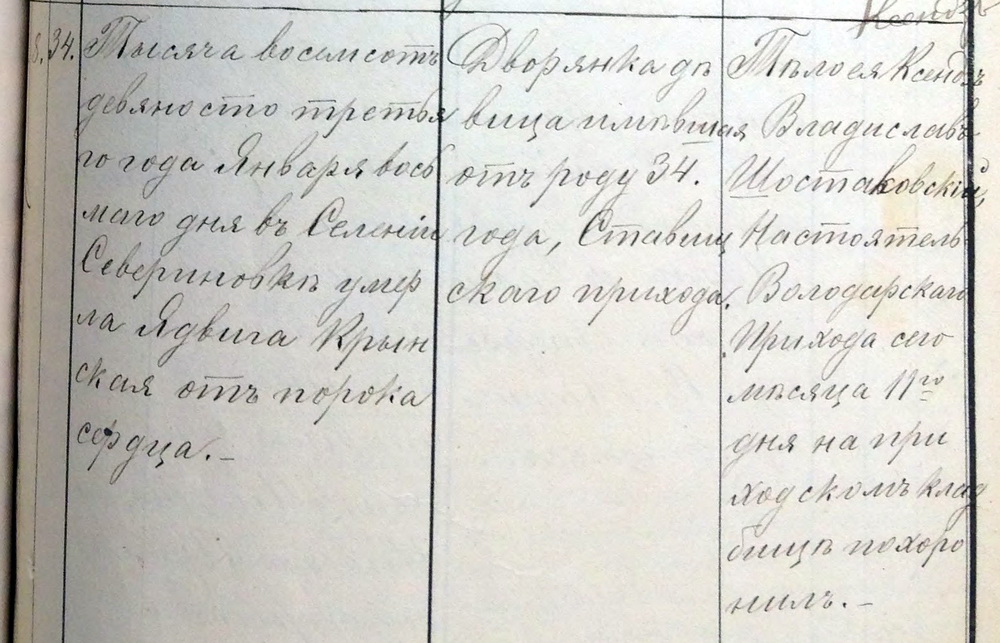 Ксендз
8. 34.
Тысяча восемсотъ
девяносто третья
го года Января вось
маго дня въ Селеніи
Севериновкѣ умер
ла Ядвига Крын
ская отъ порока
сердца.-
Дворянка дѣ
вица имѣвшая
отъ роду 34.
года, Ставищ
скаго прихода.
Тѣло ея Ксендзъ
Владиславъ
Шостаковскій,
Настоятель
Володарскаго
Прихода сего
мѣсяца 11го
дня на при
ходскомъ клад
бищѣ похоро
нилъ.-